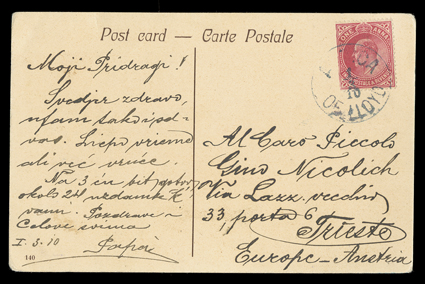 Post card — Carte Postale
Moji Pridragi!
Svedjer zdravo,
ufam tako i od
vas. Liepo vrieme
ali već vruće.
Na 3 ćn bit gotov,
okolo 24 uzdam se K
vami. Pozdrave i
Celove svima
Papài
1. 3. 10
140
ONE ANNA
INDIA POSTAGE & REVENUE
10
LLOYD
Al Caro Piccolo
Gino Nicolich
Via Lazz. vecchio
33, porta 6
Trieste
Europe - Austria